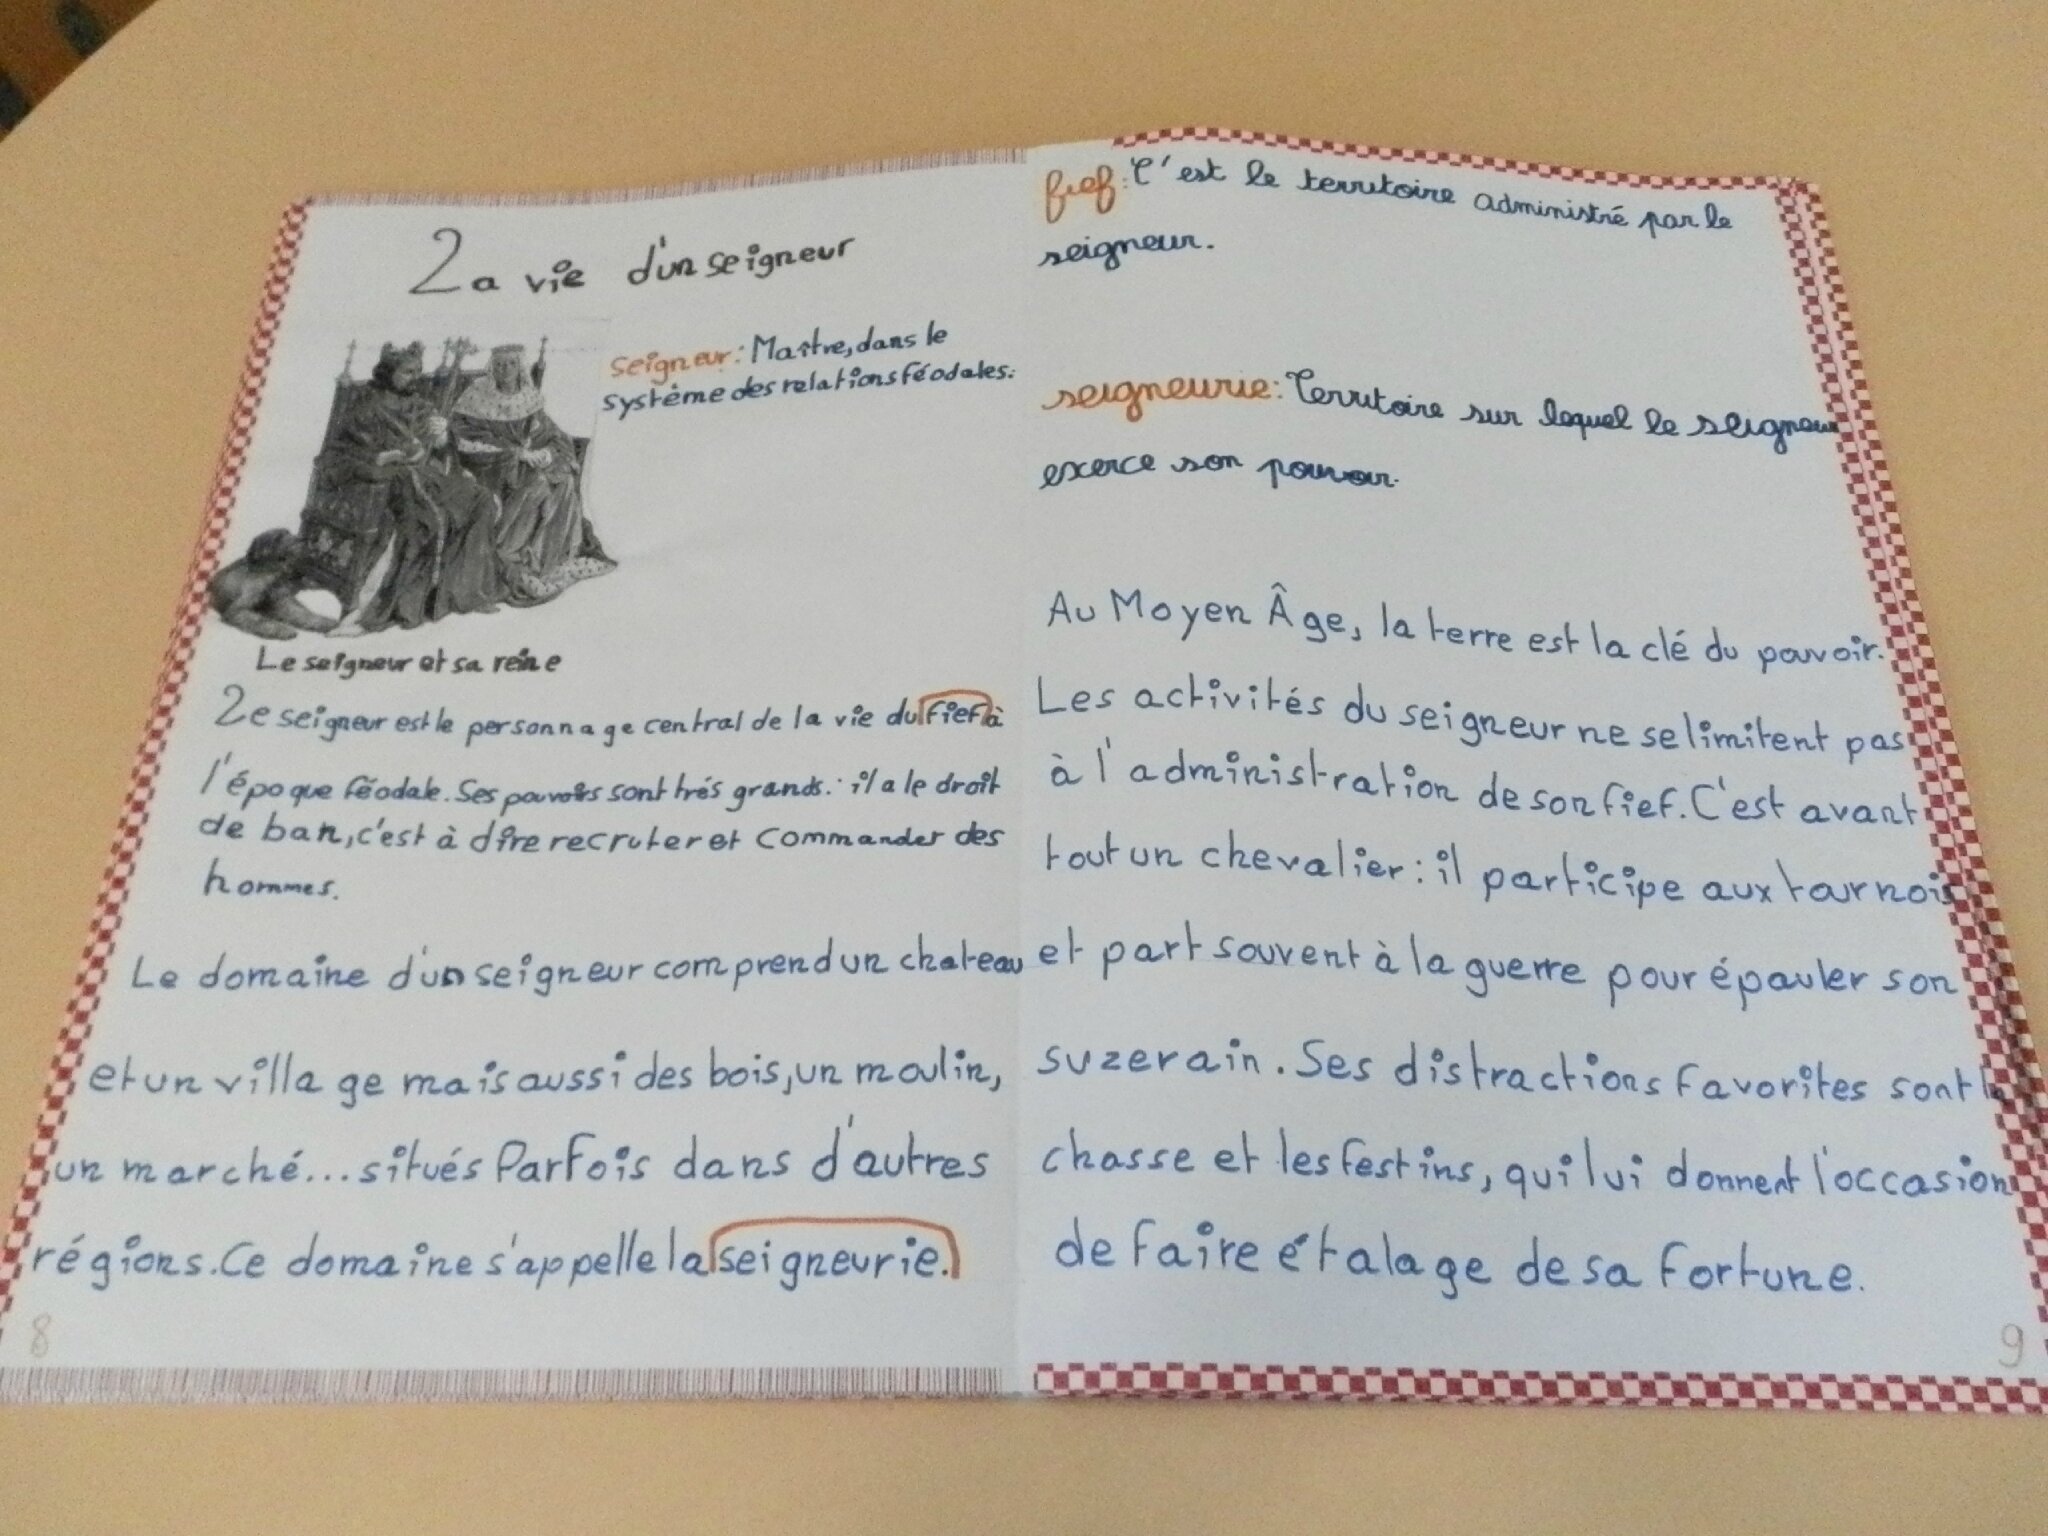 La vie d'un seigneur
seigneur: Maître, dans le
système des relations féodales.
Le seigneur et sa reine
Le seigneur est le personnage central de la vie du fief à
l'époque féodale. Ses pouvoirs sont trés grands : il a le droit
de ban, c'est à dire recruter et commander des
hommes.
Le domaine d'un seigneur comprend un chateau
et un village mais aussi des bois, un moulin,
un marché... situés Parfois dans d'autres
régions. Ce domaine s'appelle la seigneurie.
8
fief: C'est le territoire administré par le
seigneur.
seigneurie: Territoire sur lequel le seigneur
exerce son pouvoir.
Au Moyen Âge, la terre est la clé du pouvoir.
Les activités du seigneur ne se limitent pas
à l'administration de son fief. C'est avant
tout un chevalier : il participe aux tournois
et part souvent à la guerre pour épauler son
suzerain. Ses distractions favorites sont la
chasse et les festins, qui lui donnent l'occasion
de faire étalage de sa fortune.
9